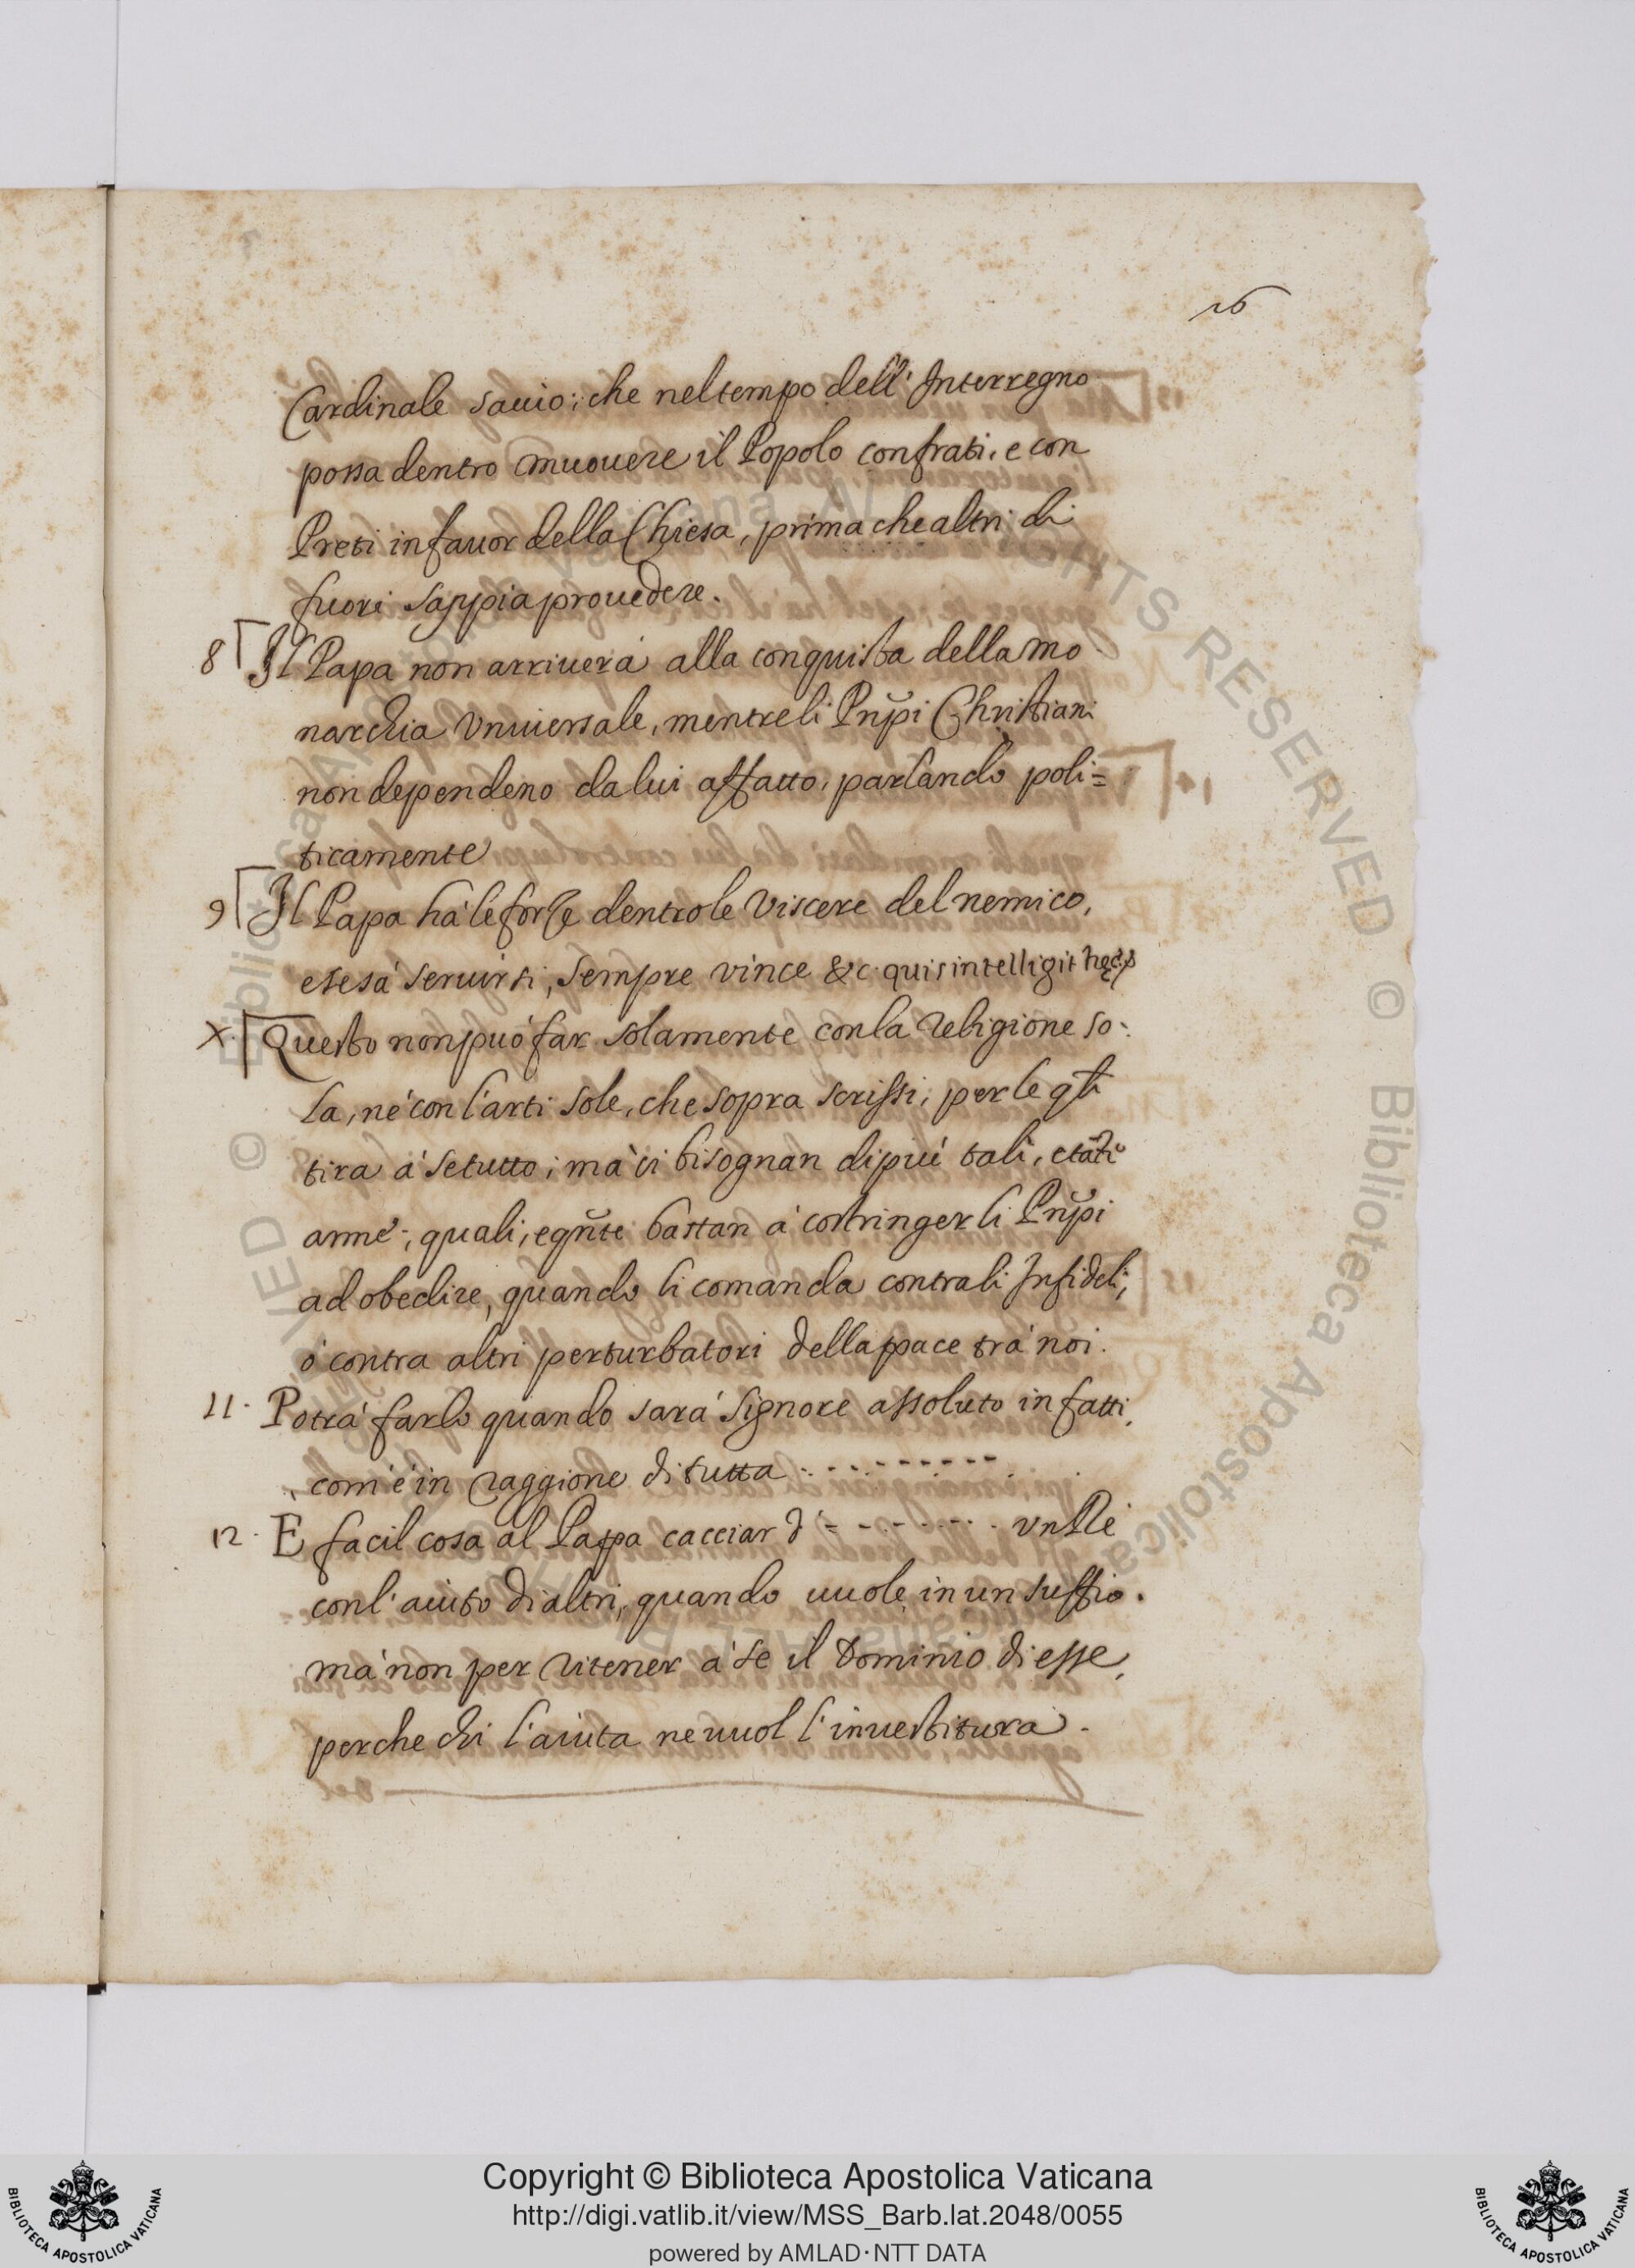 26
Cardinale sauio; che nel tempo dell' Interregno
possa dentro muouere il Popolo con frati, e con
Preti in fauor della Chiesa, prima che altri di
fuori sappia prouedere.
8 Il Papa non arriuerà alla conquista della mo
narchia Vniuersale, mentre li Prñpi Christiani
non dependeno da lui affatto, parlando poli=
ticamente
9 Il Papa hà le forze dentro le Viscere del nemico,
e se sà seruirsi, sempre vince &c. quis intelligit
X. Questo non può far solamente con la Religione so:
la, nè con l'arti sole, che sopra scrissi, per le qli
tira à se tutto; mà ci bisognan di più tali, e tãti
arme; quali, e qñte bastan à costringer li Prñpi
ad obedire, quando li comanda contra li Infideli,
ò contra altri perturbatori della pace trà noi.
11. Potrà farlo quando sarà Signore assoluto in fatti,
com'è in raggione di tutta . . - - - - - - - -
12. E facil cosa al Papa cacciar d' - - - - - - - . vn Rè
con l'aiuto di altri, quando uuole in un suffio.
mà non per ritener à se il Dominio di esse,
perche chi l'aiuta ne uuol l'inuestitura.
Copyright © Biblioteca Apostolica Vaticana
http://digi.vatlib.it/view/MSS_Barb.lat.2048/0055
powered by AMLAD·NTT DATA
BIBLIOTECA APOSTOLICA VATICANA
BIBLIOTECA APOSTOLICA VATICANA